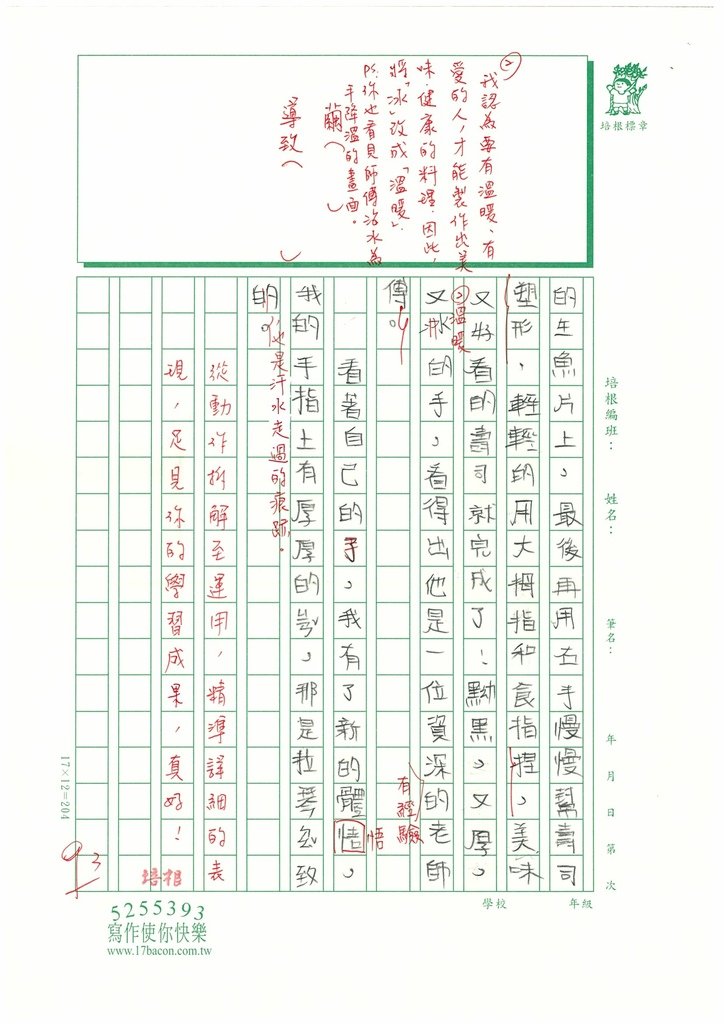 培根標章
②
我認為要有溫暖、有
愛的人，才能製作出美
味、健康的料理，因此，
將「冰」改成「溫暖」。
PS:你也看見師傅沾水為
手降溫的畫面。
繭
導致
培根編班：
姓名：
筆名：
年 月 日 第 次
學校
年級
的生魚片上，最後再用右手慢慢幫壽司
塑形，輕輕的用大拇指和食指捏，美味
又好看的壽司就完成了！黝黑，又厚，
②溫暖
又冰的手，看得出他是一位資深的老師
有經驗
傅。
看著自己的手，我有了新的體悟，
悟
我的手指上有厚厚的，那是拉琴致
的。
也是汗水走過的痕跡。
從動作拆解至運用，精準詳細的表
現，足見你的學習成果，真好！
培相
93
17×12=204
5255393
寫作使你快樂
www.17bacon.com.tw